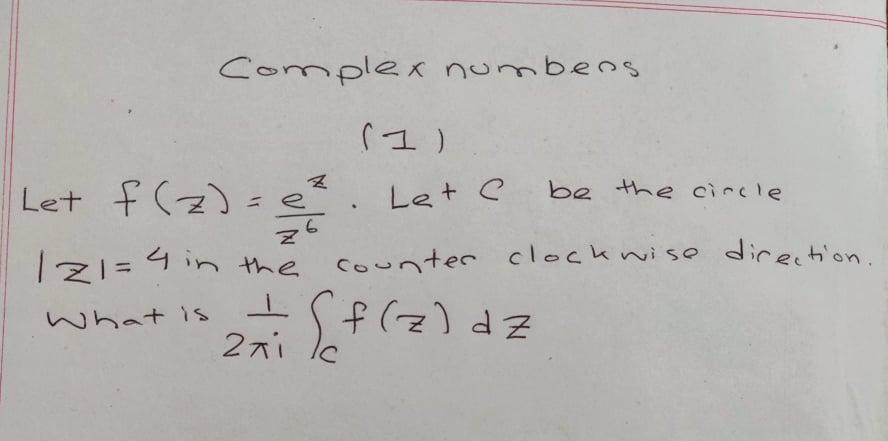 Complex numbers
(1)
Let f(z) = e^z / z^6 . Let C be the circle
|z|=4 in the counter clockwise direction.
What is 1/2πi ∫_C f(z) dz